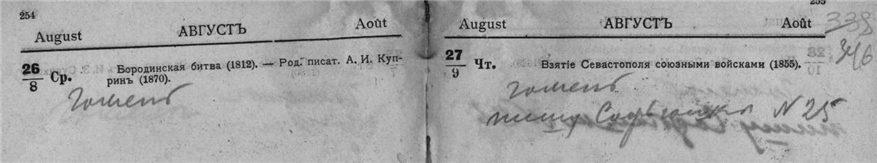 254
August АВГУСТЪ Août
26/8 Ср. Бородинская битва (1812). — Род. писат. А. И. Куп-
ринъ (1870).
Гомель
255
August АВГУСТЪ Août
338
346
27/9 Чт. Взятіе Севастополя союзными войсками (1855).
гомель
пишу N 25